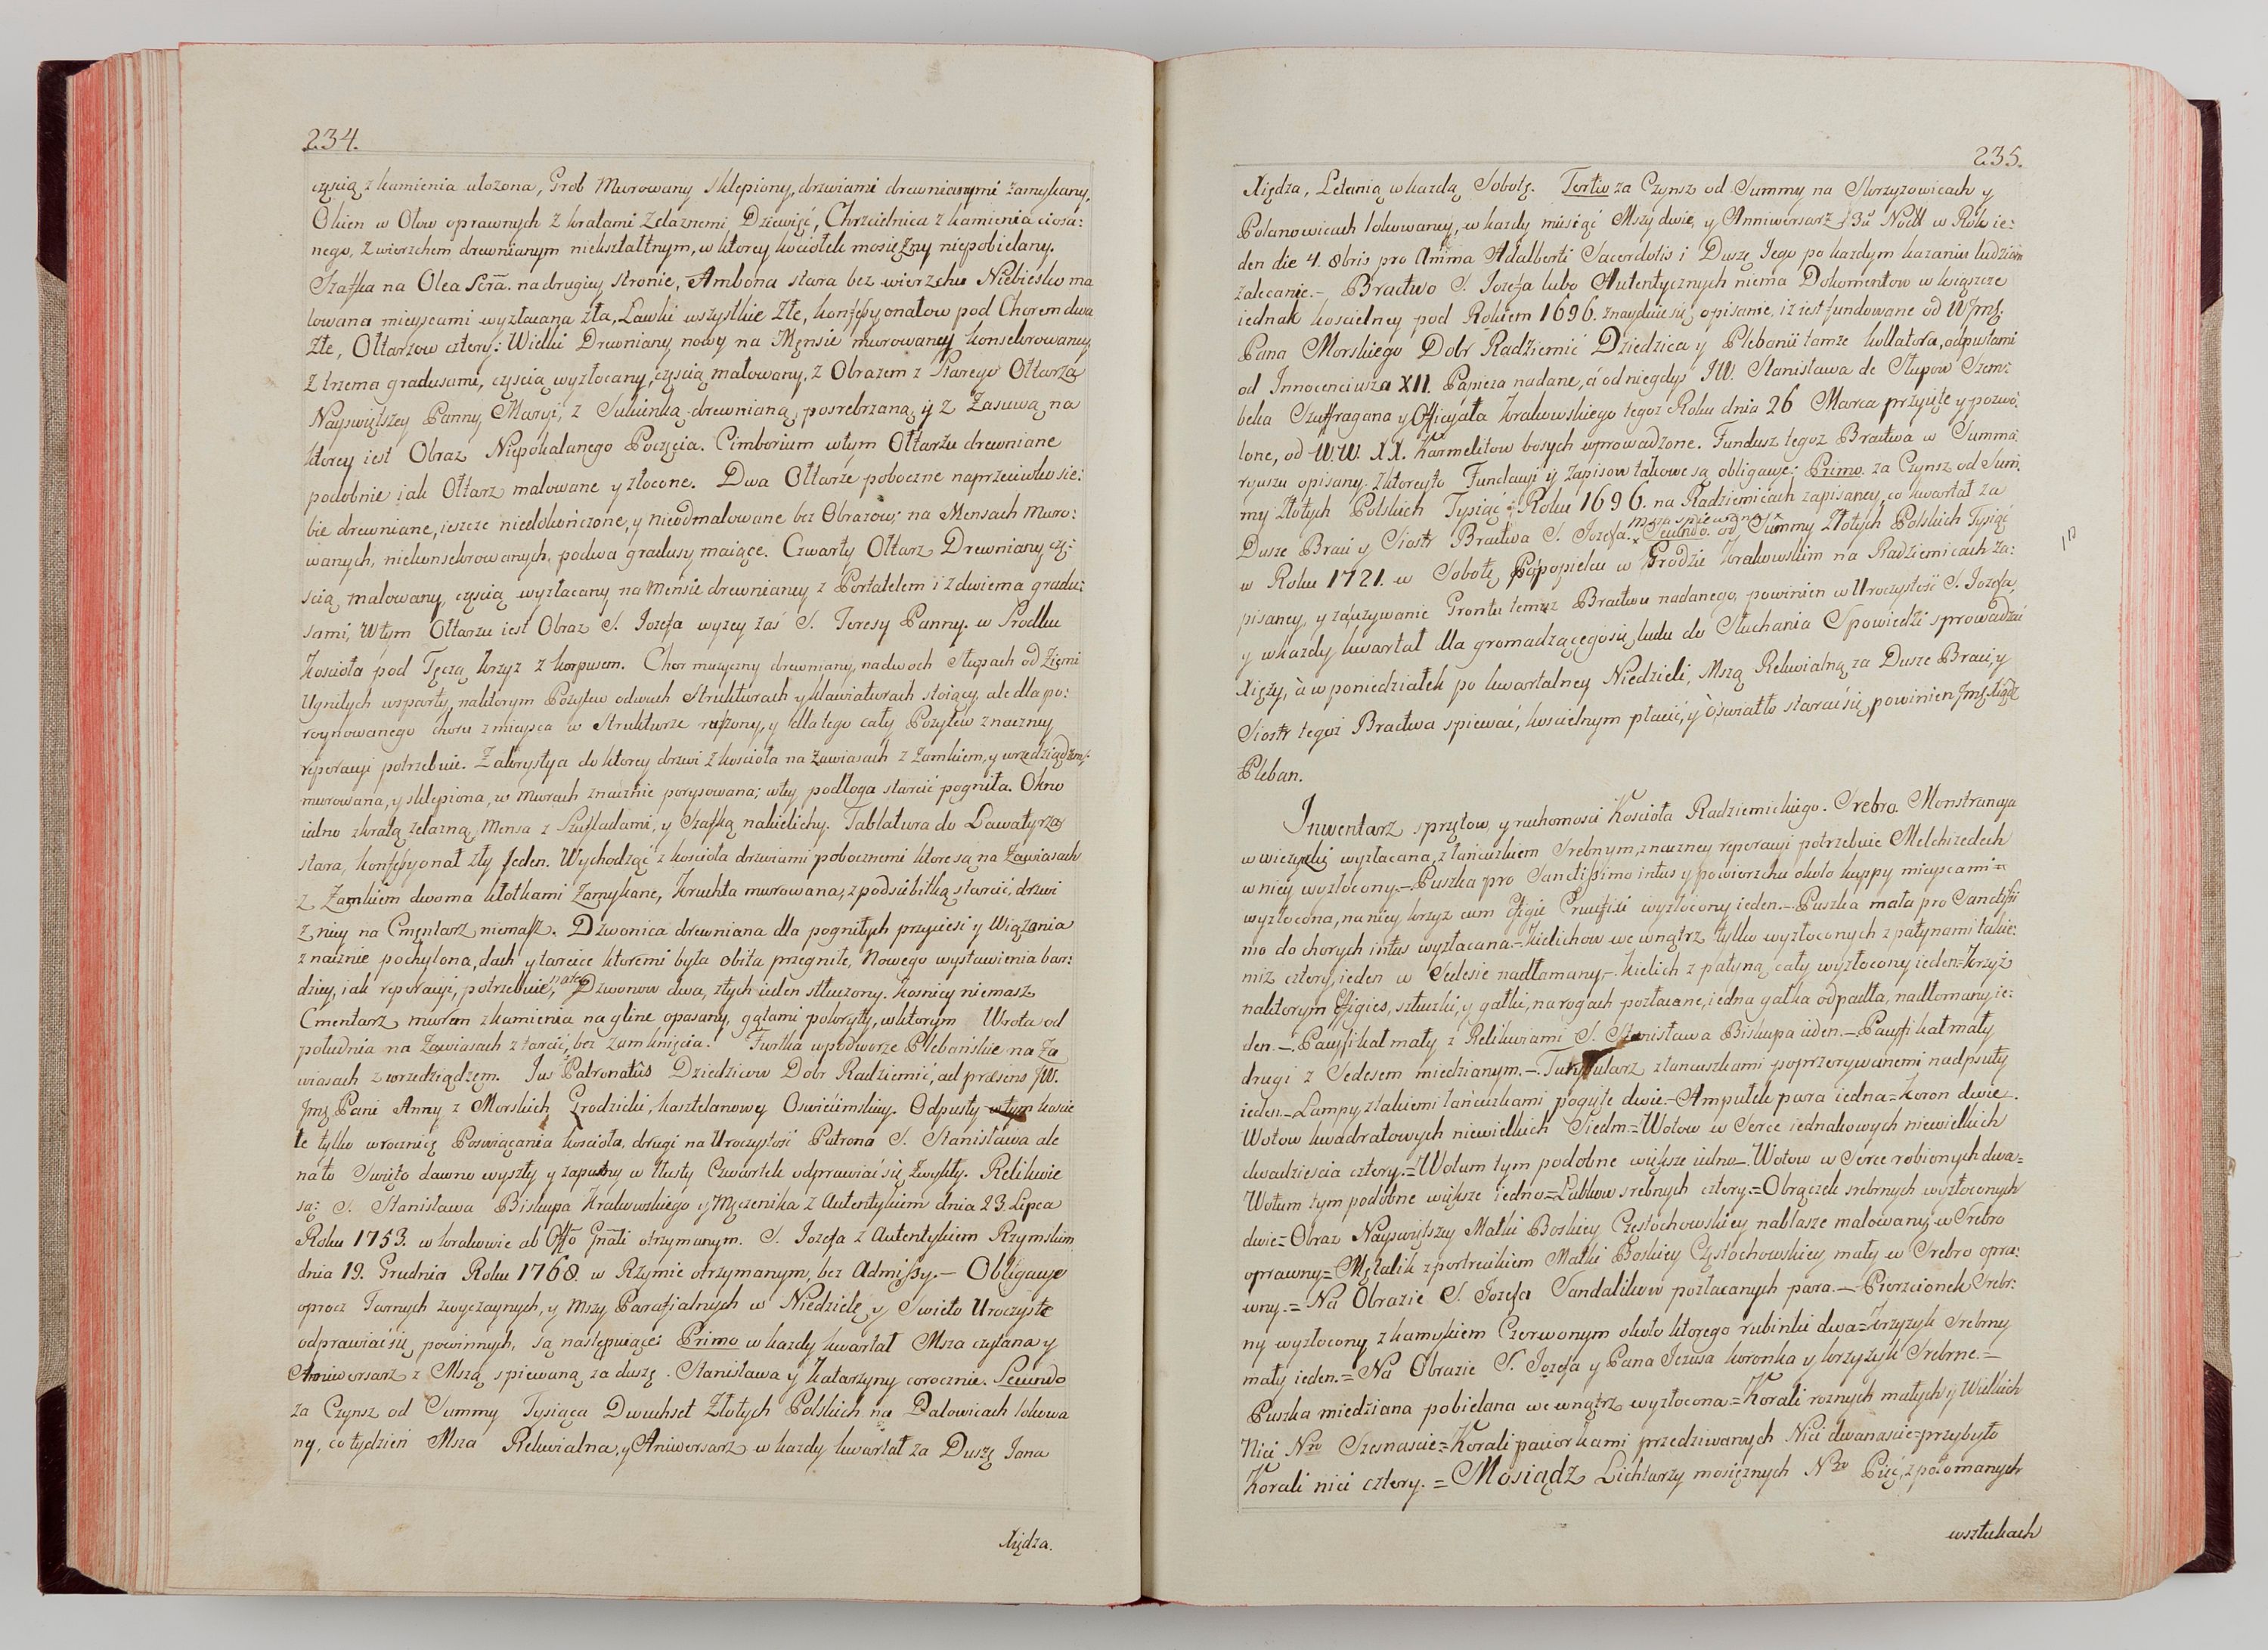 234.
częścią z kamienia ułożona, Grob Murowany sklepiony, drzwiami drewnianymi zamykany,
Okien w Ołow oprawnych z kratami żelaznemi Dziewięć, Chrzcielnica z kamienia cioso:
nego, z wierzchem drewnianym niekształtnym, w ktorey kociołek mosiężny niepobielany.
Szafka na Olea Scra. na drugiey stronie, Ambona stara bez wierzchu Niebiesko ma
lowana mieyscami wyzłacana zła, Ławki wszystkie złe, konfessyonałow pod Chorem dwa
złe, Ołtarzow cztery: Wielki Drewniany nowy na Mensie murowaney konsekrowaney
z trzema gradusami, częścią wyzłocany, częścią malowany, z Obrazem z Starego Ołtarza
Nayświętszey Panny Maryi, z Sukienką drewnianą posrebrzaną, y z Zasuwą na
ktorey iest Obraz Niepokalanego Poczęcia. Cimborium w tym Ołtarzu drewniane
podobnie iak Ołtarz malowane y złocone. Dwa Ołtarze poboczne naprzeciwko sie:
bie drewniane, ieszcze niedokończone, y nieodmalowane bez Obrazow; na Mensach muro:
wanych, niekonsekrowanych, po dwa gradusy maiące. Czwarty Ołtarz Drewniany czę:
scią malowany, częścią wyzłacany na Mensie drewnianey z Portatelem i z dwiema gradu:
sami, w tym Ołtarzu iest Obraz S. Jozefa wyzey zaś S. Teresy Panny. w Srodku
Kościoła pod Tęczą krzyz z korpusem. Chor muzyczny drewniany, na dwoch słupach od Ziemi
Ugniłych wsparty, na ktorym Pozytew o dwuch Strukturach y klawiaturach stoiący, ale dla po:
roynowanego choru z mieysca w Strukturze ruszony, y dla tego cały Pozytew znaczney
reperacyi potrzebuie. Zakrystya do ktorey drzwi z kościoła na zawiasach z zamkiem, y wrzeciądzem,
murowana, y sklepiona, w murach znacznie porysowana; w tey podłoga z tarcic pogniła. Okno
iedno z kratą żelazną, Mensa z Szufladami, y Szafką na kielichy. Tablatura do Lawatyrza
stara, konfessyonał zły jeden. Wychodząc z kościoła drzwiami pobocznemi ktore są na Zawiasach
z Zamkiem dwoma kłotkami Zamykane, kruchta murowana, z podsiebitką z tarcic, drzwi
z niey na Cmentarz niemasz. Dzwonica drewniana dla pogniłych przyciesi y Wiązania
znacznie pochylona, dach y tarcice ktoremi była obita przegniłe, Nowego wystawienia bar:
dziey, iak reperacyi, potrzebuie, na tey Dzwonow dwa, złych ieden stłuczony. Kośnicy niemasz
Cmentarz murem z kamienia na glinę opasany, gątami pokryty, w ktorym Wrota od
południa na Zawiasach z tarcic, bez zamknięcia. Furtka w podworze Plebańskie na Za
wiasach z wrzeciądzem. Jus Patronatûs Dziedzicow Dobr Radziemic, ad præsens JW.
Jmś Pani Anny z Morskich Grodzicki, kasztelanowey Oswiecimskiey. Odpusty w tym koscie
le tylko w rocznicę Poswiącania kościoła, drugi na Uroczystość Patrona S. Stanisława ale
na to Swięto dawno wyszły y zapustny w tłusty Czwartek odprawiać się zwykły. Relikwie
są: S. Stanisława Biskupa Krakowskiego y Męczenika z Autentykiem dnia 23. Lipca
Roku 1753. w krakowie ab Offo Gnāli otrzymanym. S. Jozefa z Autentykiem Rzymskim
dnia 19. Grudnia Roku 1768. w Rzymie otrzymanym, bez Admissy.— Obligacye
oprocz Farnych zwyczaynych, y Mszy Parafialnych w Niedzielę y Swięto Uroczyste
odprawiać się powinnych, są następuiące: Primo w kazdy kwartał Msza czytana y
Anniwersarz z Mszą spiewaną za duszę Stanisława y Katarzyny corocznie. Secundo
za Czynsz od Summy Tysiąca Dwuchset Złotych Polskich na Dalowicach lokowa
ney, co tydzień Msza Rekwialna, y Aniwersarz w kazdy kwartał za Duszę Jana
Xiędza.
235.
Xiędza, Letanią w kazdą Sobotę. Tertio za Czynsz od Summy na Skrzyzowicach y
Polanowicach lokowaney, w kazdy miesiąc Mszy dwie, y Anniwersarz 3ũ Noctt w Rok ie:
den die 4. 8bris pro Anima Adalberti Sacerdotis i Duszę Jego po kazdym kazaniu ludziom
zalecanie.— Bractwo S. Jozefa lubo Autentycznych niema Dokomentow w ksiąszcze
iednak kościelney pod Rokiem 1696. znayduie się opisanie, iz iest fundowane od WJmś.
Pana Morskiego Dobr Radziemic Dziedzica y Plebanii tamze kollatora, odpustami
od Innocenciusza XII. Papieza nadane, á od niegdys JW. Stanisława de Słupow Szem:
beka Szuffragana y Officyała krakowskiego tegoz Roku dnia 26 Marca przyięte y pozwo:
lone, od W.W. XX. Karmelitow bosych wprowadzone. Fundusz tegoz Bractwa w Summa:
ryuszu opisany. z ktoreyto Fundacyi y zapisow takowe są obligacye: Primo. za Czynsz od Sum:
my Złotych Polskich Tysiąc Roku 1696. na Radziemicach zapisaney, co kwartał za
Dusze Braci y Siostr Bractwa S. Jozefa. x Msza spiewana x Secundo. od Summy Złotych Polskich Tysiąc
w Roku 1721. w Sobotę po popielcu w Grodzie krakowskim na Radziemicach za:
pisaney, y zá uzywanie Gruntu temuz Bractwu nadanego, powinien w Uroczystość S. Jozefa,
y w kazdy kwartał dla gromadzącego się ludu do Słuchania Spowiedzi sprowadzać
Xięży, à w poniedziałek po kwartalney Niedzieli, Mszą Rekwialną za Dusze Braci, y
Siostr tegoz Bractwa spiewać, koscielnym płacić, y o światło starać się powinien Jmś Xiądz
Pleban.
Jnwentarz sprzętow, y ruchomosci Kościoła Radziemickiego. Srebro. Monstrancya
w wieżyczkę wyzłacana, z łańcuzkiem Srebnym, znaczney reperacyi potrzebuie Melchizedech
w niey wyzłocony.—Puszka pro Sanctissimo intus y powierzchu około kuppy mieyscami=
wyzłocona, na niey krzyz cum Effigie Crucifixi wyzłocony ieden.—Puszka mała pro Sanctissi
mo do chorych intus wyzłacana.—Kielichow we wnątrz tylko wyzłoconych z patynami takie:
miz cztery, ieden w Sedesie nadłamany.—Kielich z patyną cały wyzłocony ieden=Krzyż
na ktorym Effigies, sztuczki, y gałki, na rogach pozłacane, iedna gałka odpadła, nadłomany ie:
den.—Pacyfikał mały z Relikwiami S. Stanisława Biskupa ieden.—Pacyfikał mały
drugi z Sedesem miedzianym.—Turybularz z łancuszkami poprzerywanemi nadpsuty
ieden.—Lampy z takiemi łańcuzkami pogięte dwie.—Ampułek para iedna=Koron dwie.
Wotow kwadratowych niewielkich Siedm.=Wotow w Serce iednakowych niewielkich
dwadziescia cztery.=Wotum tym podobne większe iedno.—Wotow w Serce robionych dwa=
Wotum tym podobne większe iedno=Łubkow srebnych cztery.=Obrączek srebrnych wyzłoconych
dwie=Obraz Nayświętszey Matki Boskiey Częstochowskiey na blasze malowany w Srebro
oprawny=Mętalik z portrecikiem Matki Boskiey Częstochowskiey mały w Srebro opra:
wny.=Na Obrazie S. Jozefa Sandalikow pozłacanych para.—Pierzcionek Srebr:
ny wyzłocony z kamykiem Czerwonym około ktorego rubinki dwa=Krzyzyk Srebrny
mały ieden.=Na Obrazie S. Jozefa y Pana Jezusa koronka y krzyżyk Srebrne.=
Puszka miedziana pobielana we wnątrz wyzłocona=Korali roznych małych y Wielkich
Nici Nro Szesnascie=Korali paciorkami przedziwanych Nici dwanascie=przybyło
Korali nici cztery.=Mosiądz Lichtarzy mosiężnych Nro Pięć, z połomanych
wsztukach